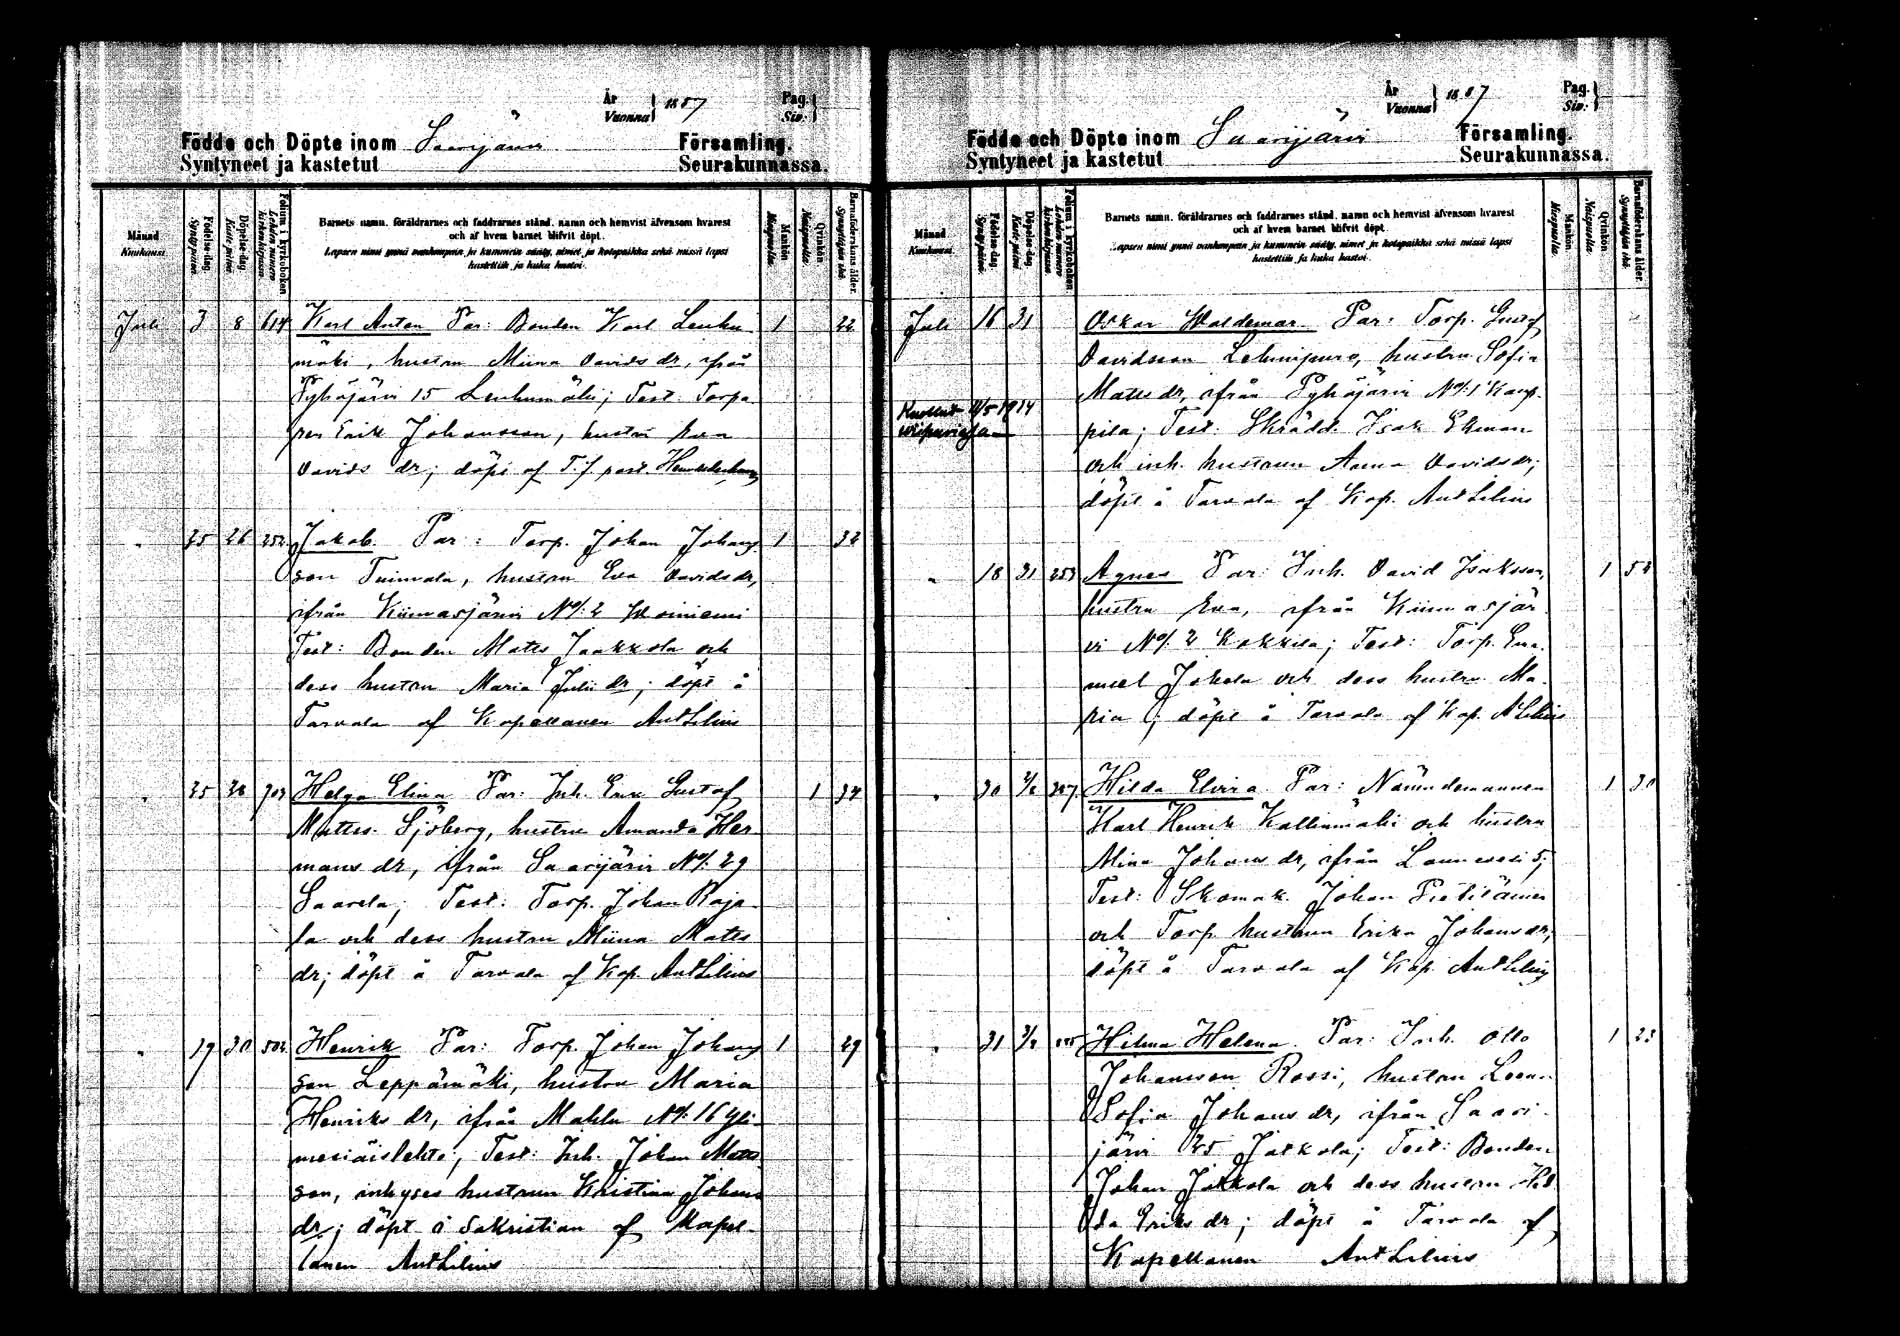 År
Vuonna } 1887
Pag.
Siv. }
Födde och Döpte inom Saarijärvi Församling.
Syntyneet ja kastetut Seurakunnassa.
Månad
Kuukausi.
Födelse-dag.
Syntypäivä.
Döpelse-dag.
Kaste-päivä
Folium i kyrkoboken
Lehden numero kirkonkirjassa
Barnets namn, föräldrarnes och faddrarnes stånd, namn och hemvist äfvensom hvarest
och af hvem barnet blifvit döpt.
Lapsen nimi ynnä vanhempain ja kummein sääty, nimet ja kotopaikka sekä missä lapsi
kastettiin ja kuka kastoi.
Mankön
Miespuolia.
Qvinkön
Naispuolia.
Barnaföderskans ålder.
Synnyttäjän ikä.
Juli 3 8 614 Karl Anton Par: Bonden Karl Leuhu 1 22
mäki, hustru Miina Davids dr, ifrån
Pyhäjärvi 15 Leuhumäki; Test. Torpa
ren Erik Johansson, hustru Eva
Davids dr; döpt af T.f. past.
" 25 26 252 Jakob. Par: Torp. Johan Johans 1 32
son Tuimala, hustru Eva Davidsdr,
ifrån Kiimasjärvi No/: 2
Test: Bonden Matts Jaakkola och
dess hustru Maria Julii dr; döpt å
Tarvala af Kapellanen Ant Lilius
" 25 28 703 Helga Elina Par: Inh. Erik Gustaf 1 34
Mattss. Sjöberg, hustru Amanda Her
mans dr, ifrån Saarijärvi No/: 29
Saarela; Test: Torp. Johan Raja-
la och dess hustru Miina Matts
dr; döpt å Tarvala af Kap. Ant Lilius
" 19 30 502 Henrik Par: Torp. Johan Johans 1 29
son Leppämäki, hustru Maria
Henriks dr, ifrån Mahlu No/: 16 Yli-
mesiäislehto, Test: Inh. Johan Matts
son, inhyses hustrun Kristina Johans
dr; döpt i Sakristian af Kapel-
lanen Ant Lilius
År
Vuonna } 1887
Pag.
Siv. }
Födde och Döpte inom Saarijärvi Församling.
Syntyneet ja kastetut Seurakunnassa.
Månad
Kuukausi.
Födelse-dag.
Syntypäivä.
Döpelse-dag.
Kaste-päivä
Folium i kyrkoboken.
Lehden numero kirkonkirjassa
Barnets namn, föräldrarnes och faddrarnes stånd, namn och hemvist äfvensom hvarest
och af hvem barnet blifvit döpt.
Lapsen nimi ynnä vanhempain ja kummein sääty, nimet ja kotopaikka sekä missä lapsi
kastettiin ja kuka kastoi.
Mankön
Miespuolia.
Qvinkön
Naispuolia.
Barnaföderskans ålder.
Synnyttäjän ikä.
Juli 16 31 Oskar Waldemar Par: Torp. Gustaf
Davidsson Lehmipuro, hustru Sofia
Matts dr, ifrån Pyhäjärvi No/: 1 Kamp-
Kuollut 11/5 1914
Wiipurissa
pila; Test: Skrädd. Isak Ekman
och inh. hustrun Anna Davidsdr;
döpt å Tarvala af Kap. Ant Lilius
" 18 31 253 Agnes Par: Inh. David Isaksson, 1
hustru Eva, ifrån Kiimasjär
vi No/: 2 Kokkila; Test: Torp. Ema
nuel Jokela och dess hustru Ma-
ria; döpt å Tarvala af Kap. A Lilius
" 30 Hilda Elvira Par: Nämndemannen 1 30
Karl Henrik Kalliomäki och hustru
Mina Johans dr, ifrån Lannevesi 5;
Test: Skomak. Johan Pietiläinen
och Torp. hustrun Erika Johansdr;
döpt å Tarvala af Kap. Ant Lilius
" 31 Hilma Helena. Par: Inh. Otto 1 23
Johansson Rossi, hustru
Sofia Johans dr, ifrån Saari-
järvi 25 Jakkola; Test: Bonden
Johan Jakkola och dess hustru Hil
da Eriks dr; döpt å Tarvala af
Kapellanen Ant Lilius